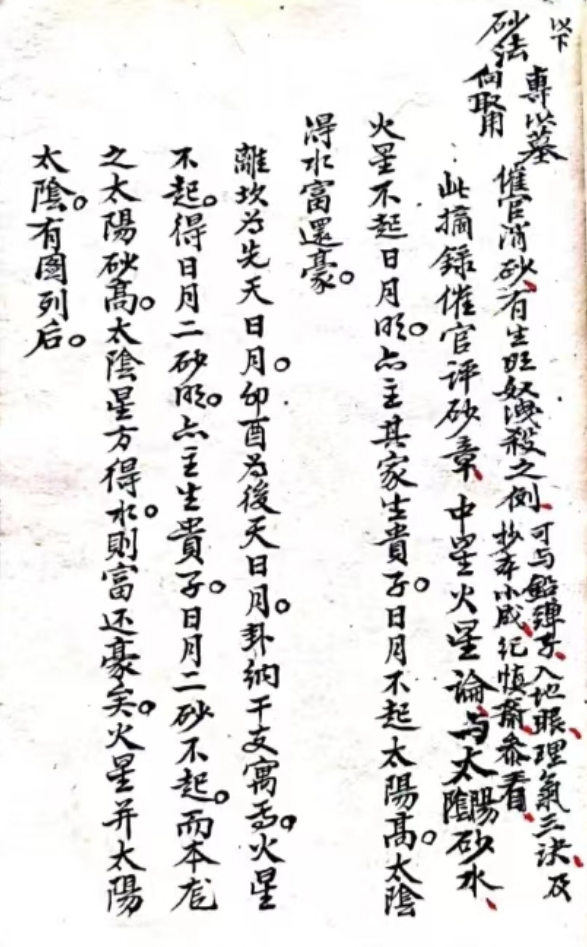 以下
砂法
向取用
專以墓
催官消砂、有生旺奴洩殺之例、可与鉛彈子、入地眼、理氣三訣、及
抄本小成、纪慎齋参看、
此摘錄催官评砂章、中星火星論、与太陰陽砂水、
火星不起日月明。亦主其家生貴子。日月不起太陽高。太陰
得水富還豪。
離坎为先天日月。卯酉为後天日月。卦纳干支寓焉。火星
不起。得日月二砂明。亦主生貴子。日月二砂不起。而本龙
之太陽砂高。太陰星方得水。则富还豪矣。火星并太陽
太陰。有圖列后。